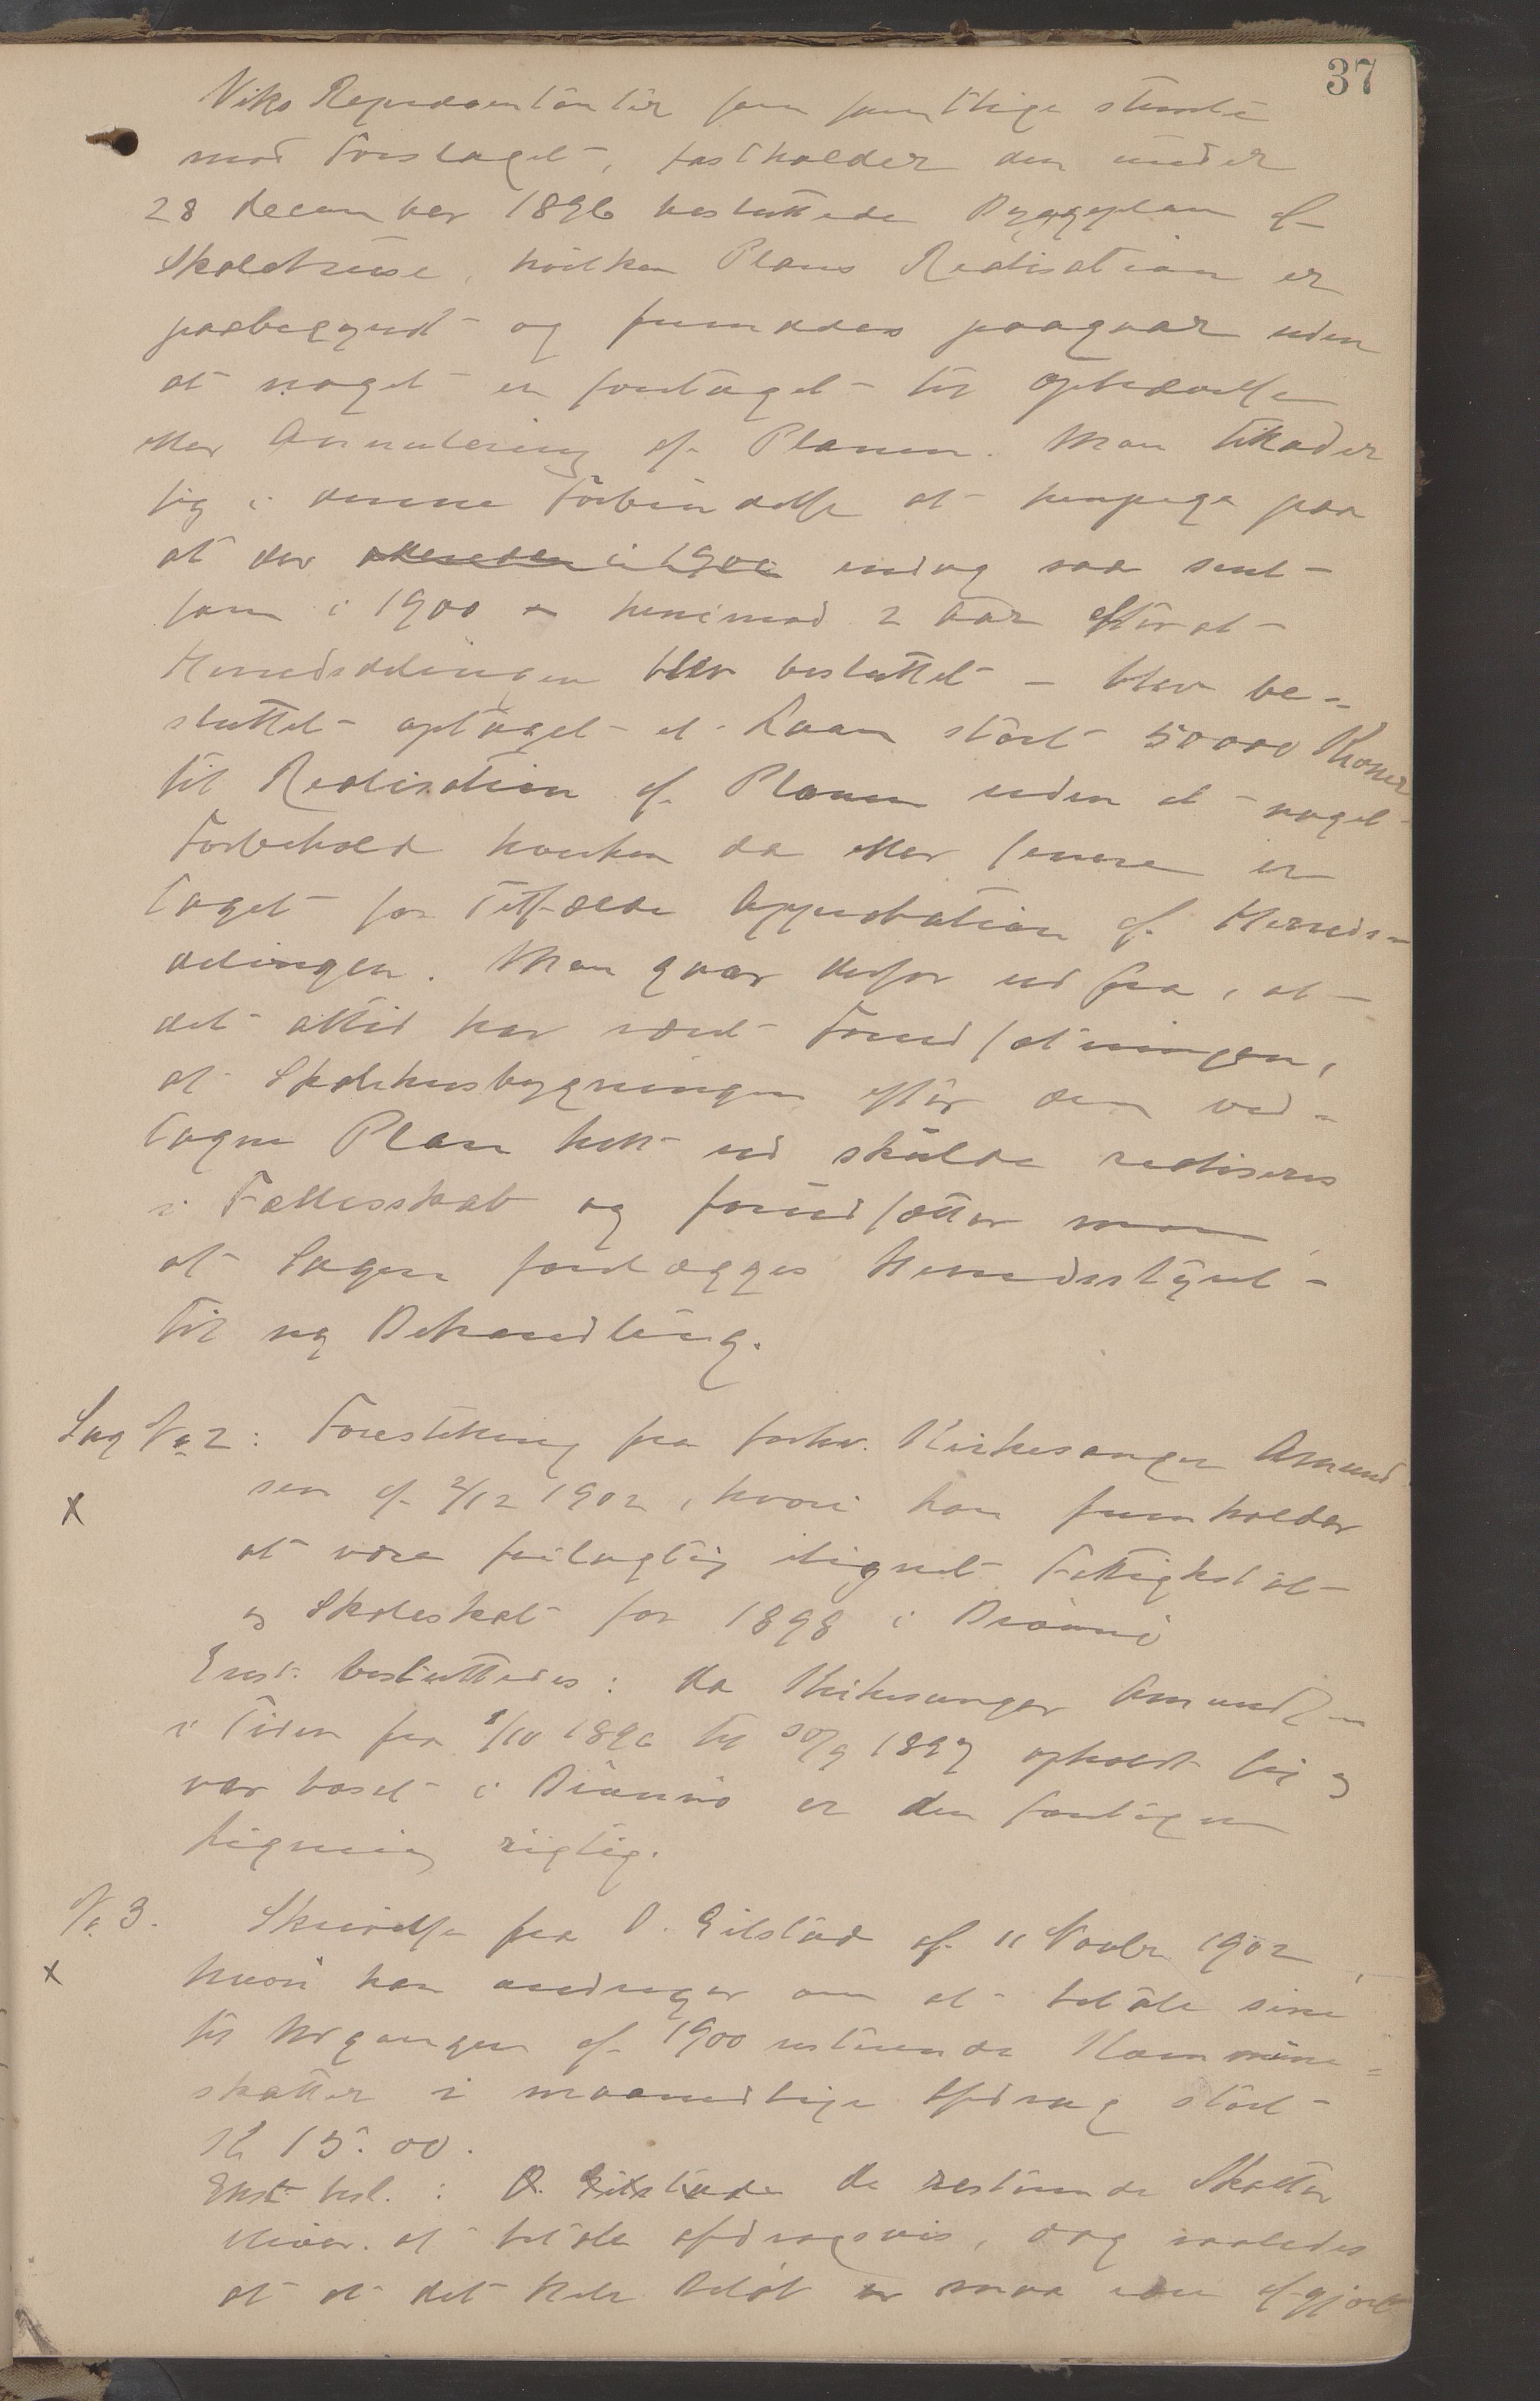 37
Viks Repræsentanter som samtlige stemte
mod Forslaget, fastholder den under
28 december 1896 besluttede Byggeplan af
Skolehuse, hvilken Plans Realisation er
paabegyndt og fremdeles paagaar uden
at noget er foretaget til Ophævelse
eller Annulering af Planen. Man tillader
sig i denne Forbindelse at henpege paa
at der allerede i 1900 endog saa sent
som i 1900 – henimod 2 Aar efterat
Herredsdelingen blev besluttet – blev be-
sluttet optaget et Laan stort 50000 Kroner
til Realisation af Planen uden at noget
Forbehold hverken da eller senere er
taget for Tilfælde Approbation af Herreds-
delingen. Man gaar derfor ud fra, at
det altid har været Forudsætningen,
at Skolehusbygningen efter den ved-
tagne Plan helt ud skulde realiseres
i Fællesskab og forudsætter man
at Sagen forelægges Herredsstyret
til ny Behandling.
Sag No 2: Forestilling fra forhv. Kirkesanger Amund
sen af 2/12 1902, hvori han fremholder
at være feilagtig ilignet Fattigskat
og Skoleskat for 1898 i Brønnø
Enst. besluttedes: da Kirkesanger Amundsen
i Tiden fra 1/10 1896 til 30/9 1897 opholdt sig og
var bosat i Brønnø er den foretagne
Ligning rigtig.
No 3. Skrivelse fra O. Eilstad af 11 Novbr 1902,
hvori han andrager om at betale sine
til Udgangen af 1900 resterende Kommune-
skatter i maanedlige Afdrag stort
Kr 15.00.
Enst. besl.: O. Eilstade de resterende Skatter
at betale afdragsvis, dog saaledes
at det hele Beløb maa være afgjort